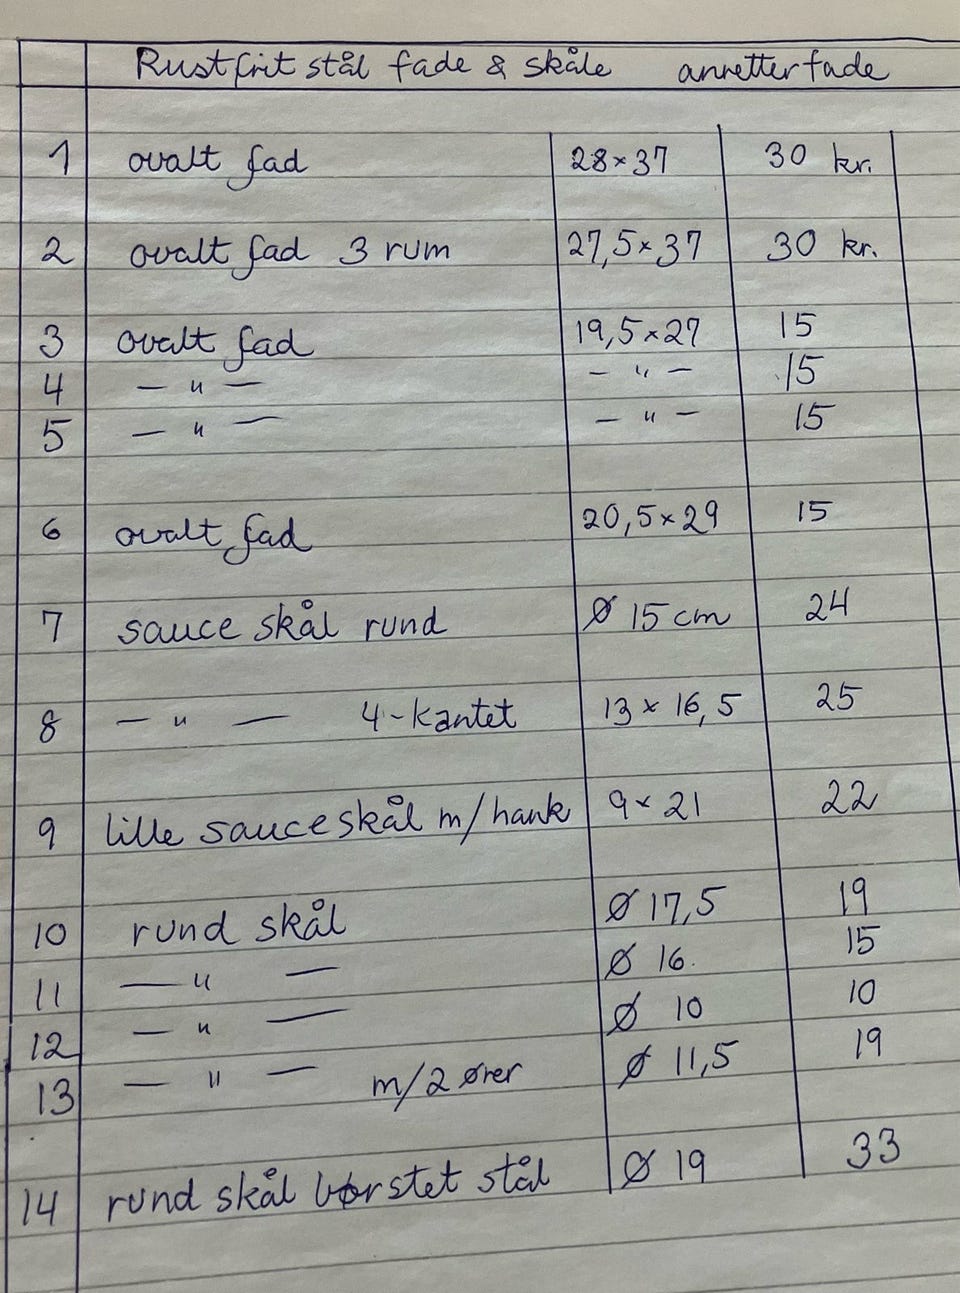 Rustfrit stål fade & skåle anretterfade
1 ovalt fad 28×37 30 kr.
2 ovalt fad 3 rum 27,5×37 30 kr.
3 ovalt fad 19,5×27 15
4 — " — — " — 15
5 — " — — " — 15
6 ovalt fad 20,5×29 15
7 sauce skål rund Ø 15 cm 24
8 — " — 4-kantet 13 × 16,5 25
9 lille sauceskål m/hank 9 × 21 22
10 rund skål Ø 17,5 19
11 — " — Ø 16. 15
12 — " — Ø 10 10
13 — " — m/2 ører Ø 11,5 19
14 rund skål børstet stål Ø 19 33